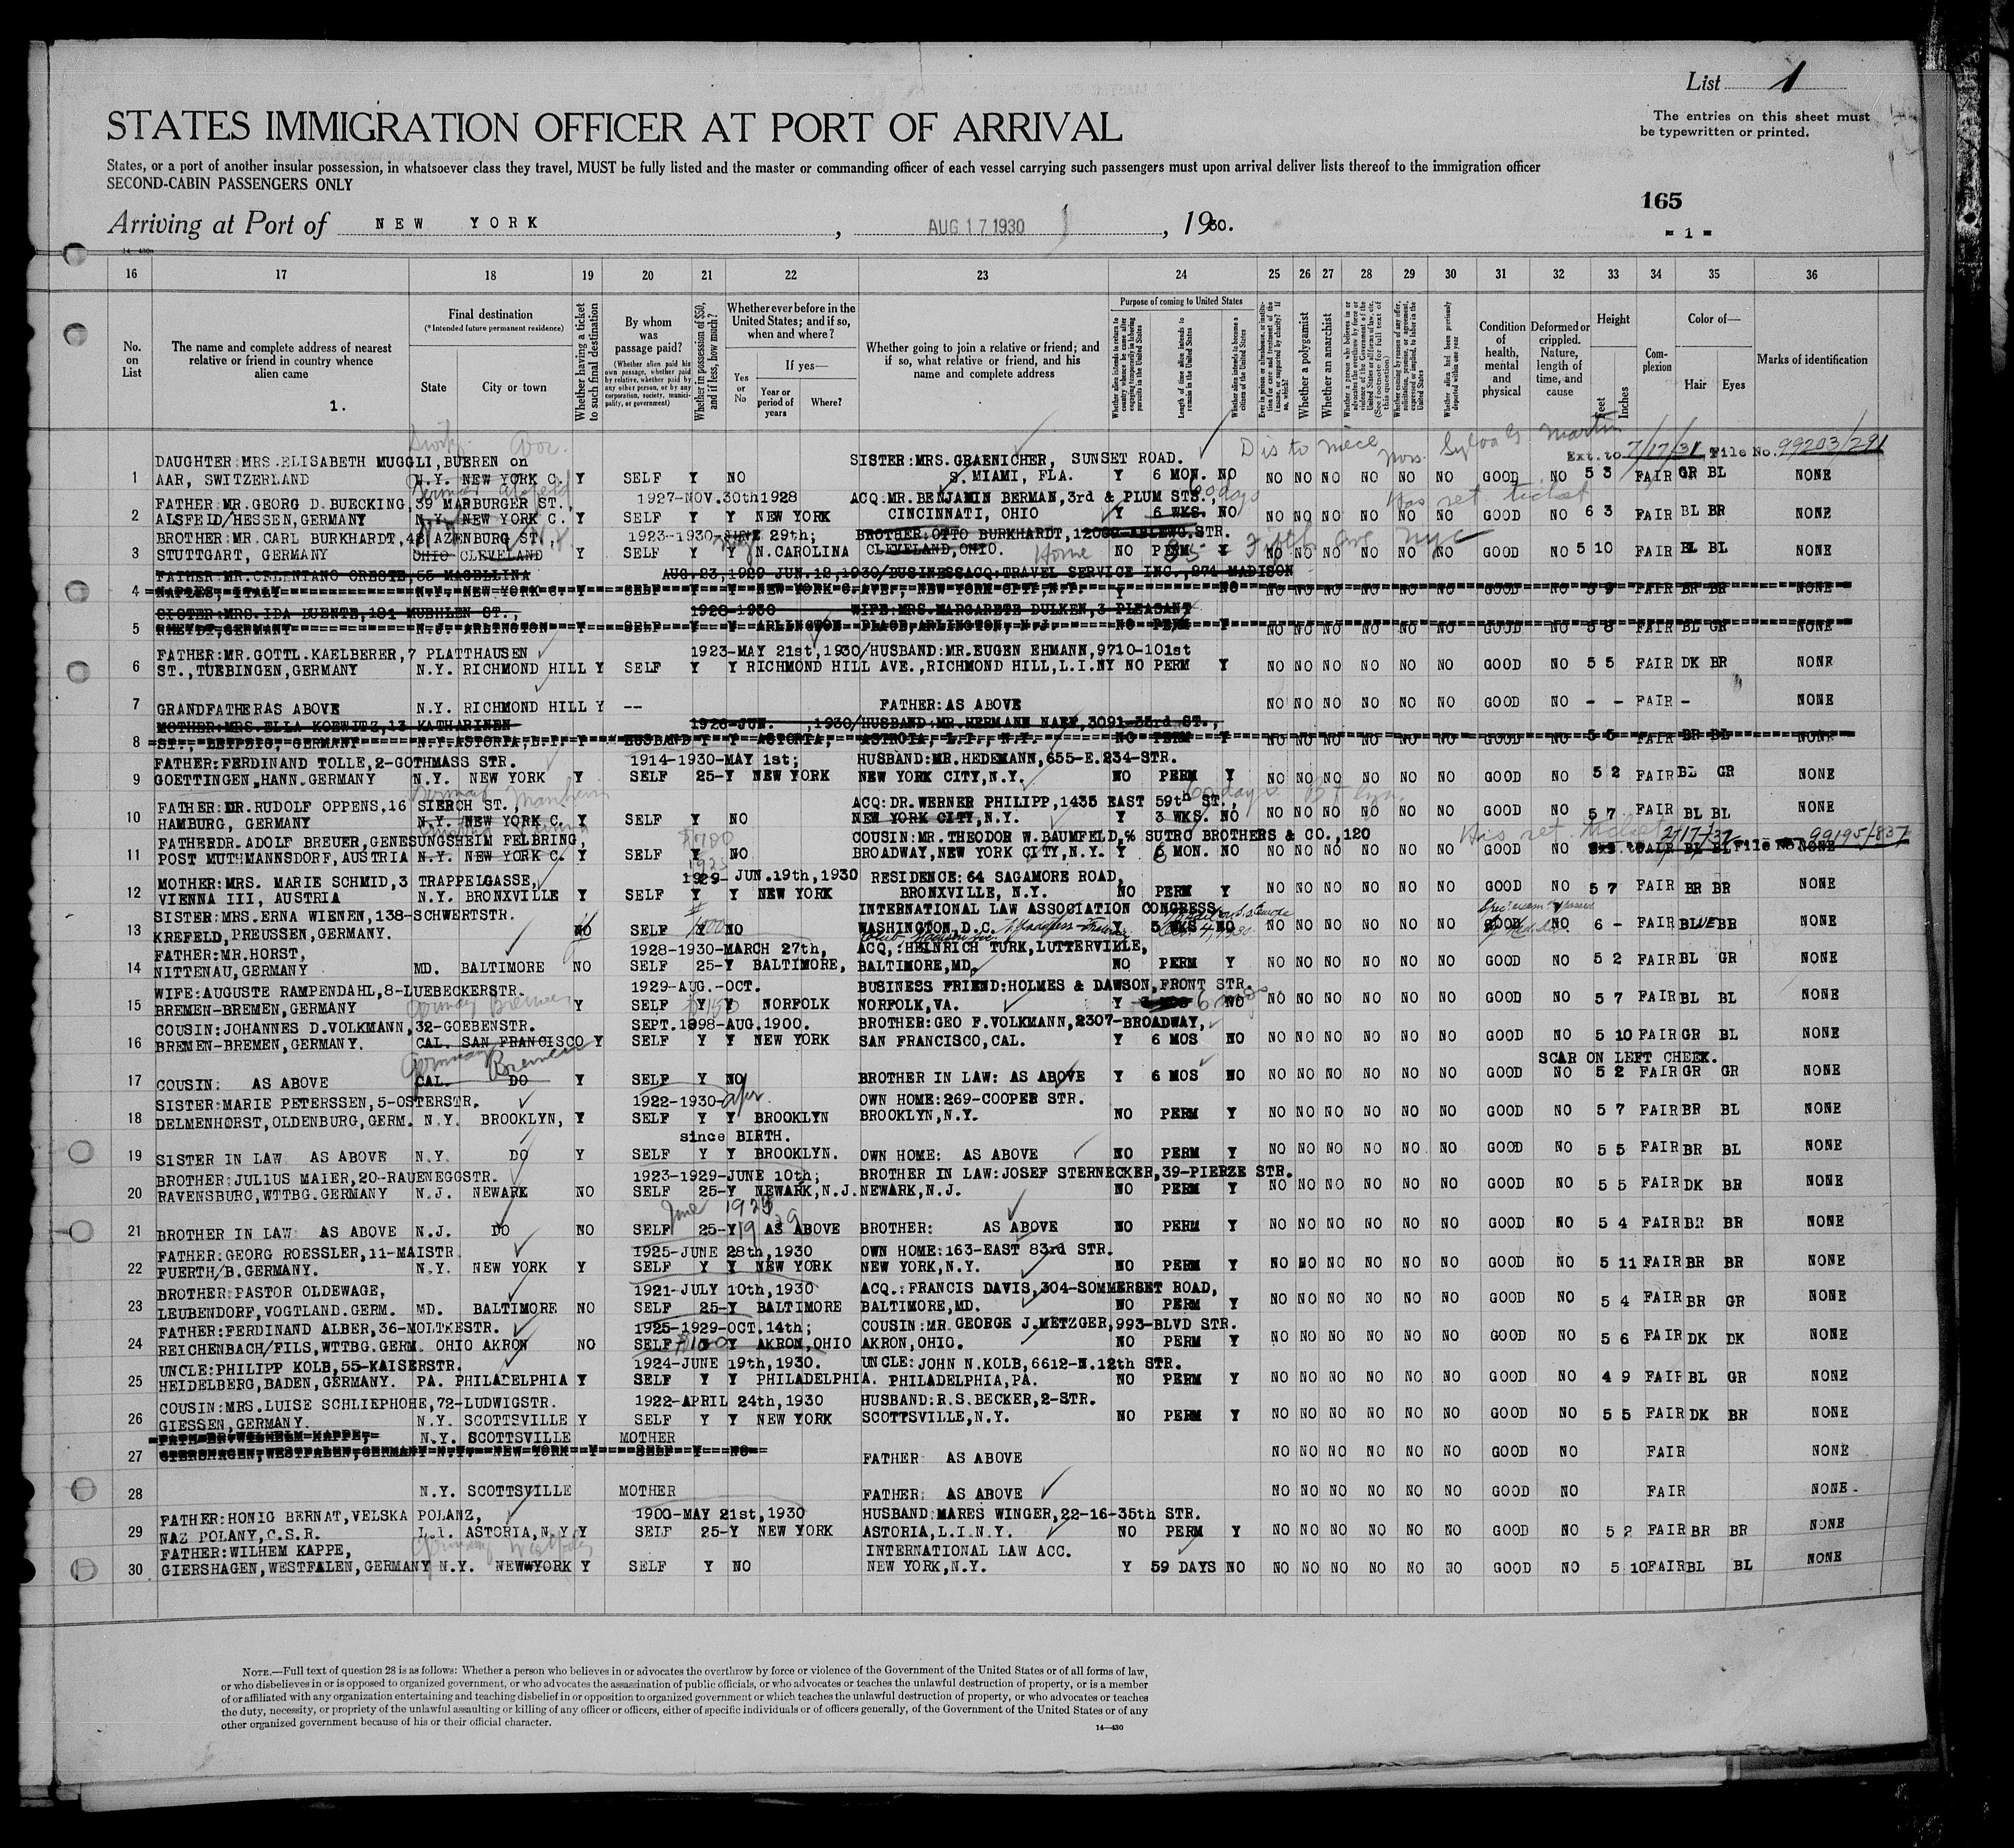 List 1
The entries on this sheet must
be typewritten or printed.
STATES IMMIGRATION OFFICER AT PORT OF ARRIVAL
States, or a port of another insular possession, in whatsoever class they travel, MUST be fully listed and the master or commanding officer of each vessel carrying such passengers must upon arrival deliver lists thereof to the immigration officer
SECOND-CABIN PASSENGERS ONLY
165
Arriving at Port of NEW YORK, AUG 17 1930, 1930.
- 1 -
14-430
16 17 18 19 20 21 22 23 24 25 26 27 28 29 30 31 32 33 34 35 36
No. on List
The name and complete address of nearest relative or friend in country whence alien came
1.
Final destination
(*Intended future permanent residence)
State City or town
Whether having a ticket to such final destination
By whom was passage paid?
(Whether alien paid his own passage, whether paid by relative, whether paid by any other person, or by any corporation, society, municipality, or government)
Whether in possession of $50, and if less, how much?
Whether ever before in the United States; and if so, when and where?
Yes or No
If yes—
Year or period of years Where?
Whether going to join a relative or friend; and if so, what relative or friend, and his name and complete address
Purpose of coming to United States
Whether alien intends to return to country whence he came after engaging temporarily in laboring pursuits in the United States
Length of time alien intends to remain in the United States
Whether alien intends to become a citizen of the United States
Whether a polygamist
Whether an anarchist
Condition of health, mental and physical
Deformed or crippled. Nature, length of time, and cause
Height
Feet Inches
Complexion
Color of—
Hair Eyes
Marks of identification
Dis to niece Mrs. Martin
Ext. to 7/17/31 File No. 99203/291
DAUGHTER:MRS.ELISABETH MUGGLI,BUEREN on SISTER:MRS.GRAENICHER, SUNSET ROAD.
1 AAR, SWITZERLAND N.Y. NEW YORK C. Y SELF Y NO S. MIAMI, FLA. Y 6 MON. NO NO NO NO NO NO NO GOOD NO 5 3 FAIR GR BL NONE
FATHER:MR.GEORG D.BUECKING,39 MARBURGER ST., 1927-NOV.30th1928 ACQ:MR.BENJAMIN BERMAN,3rd & PLUM STS., 60 days Has ret ticket
2 ALSFELD/HESSEN,GERMANY N.Y. NEW YORK C. Y SELF Y Y NEW YORK CINCINNATI, OHIO Y 6 WKS. NO NO NO NO NO NO NO GOOD NO 6 3 FAIR BL BR NONE
BROTHER:MR.CARL BURKHARDT,48 AZENBURG ST., 1923-1930-JUNE 29th; BROTHER:OTTO BURKHARDT,12000 ABLEWG.STR.
3 STUTTGART, GERMANY OHIO CLEVELAND Y SELF Y Y N.CAROLINA CLEVELAND,OHIO. Home NO PERM Y 85 Fifth Ave NYC NO NO NO NO NO NO GOOD NO 5 10 FAIR BL BL NONE
FATHER:MR.CELENTANO ORESTE,55 MAGELLINA AUG.23,1929-JUN.12,1930/BUSINESSACQ:TRAVEL SERVICE INC.,274 MADISON
4 NAPLES, ITALY N.Y. NEW YORK C. Y SELF Y Y NEW YORK C. AVE., NEW YORK CITY,N.Y. Y NO NO NO NO NO NO NO GOOD NO 5 9 FAIR BR BR NONE
SISTER:MRS.IDA DUENTE,181 MUEHLEN ST., 1928-1930 WIFE:MRS.MARGARETE DULKEN,3 PLEASANT
5 RHEYDT,GERMANY N.J. ARLINGTON Y SELF Y Y ARLINGTON PLACE,ARLINGTON, N.J. NO PERM Y NO NO NO NO NO NO GOOD NO 5 8 FAIR BL GR NONE
FATHER:MR.GOTTL.KAELBERER,7 PLATTHAUSEN 1923-MAY 21st,1930/HUSBAND:MR.EUGEN EHMANN,9710-101st
6 ST.,TUEBINGEN,GERMANY N.Y. RICHMOND HILL Y SELF Y Y RICHMOND HILL AVE.,RICHMOND HILL,L.I.NY NO PERM Y NO NO NO NO NO NO GOOD NO 5 5 FAIR DK BR NONE
7 GRANDFATHER AS ABOVE N.Y. RICHMOND HILL Y -- FATHER:AS ABOVE NO NO NO NO NO NO GOOD NO - - FAIR - NONE
MOTHER:MRS.ELLA KOEWITZ,13 KATHARINEN 1926-JUN. ,1930/HUSBAND:MR.HERMANN NAEF,3091-35rd ST.,
8 ST., LEIPZIG, GERMANY N.Y. ASTORIA,L.I. Y HUSBAND Y Y ASTORIA, ASTROIA, L.I., N.Y. NO PERM Y NO NO NO NO NO NO GOOD NO 5 5 FAIR BR BL NONE
FATHER:FERDINAND TOLLE,2-GOTHMASS STR. 1914-1930-MAY 1st; HUSBAND:MR.HEDEMANN,655-E.234-STR.
9 GOETTINGEN,HANN.GERMANY N.Y. NEW YORK Y SELF 25-Y NEW YORK NEW YORK CITY,N.Y. NO PERM Y NO NO NO NO NO NO GOOD NO 5 2 FAIR BL GR NONE
FATHER:DR.RUDOLF OPPENS,16 SIERCH ST., ACQ:DR.WERNER PHILIPP,1435 EAST 59th ST., 60 days
10 HAMBURG, GERMANY N.Y. NEW YORK C. Y SELF Y NO NEW YORK CITY,N.Y. Y 3 WKS. NO NO NO NO NO NO NO GOOD NO 5 7 FAIR BL BL NONE
FATHERDR.ADOLF BREUER,GENESUNGSHEIM FELBRING, COUSIN:MR.THEODOR W.BAUMFELD,% SUTRO BROTHERS & CO.,120 His ret. ticket 2/17/32 File No. 99195/837
11 POST MUTHMANNSDORF,AUSTRIA N.Y. NEW YORK C. Y SELF Y NO BROADWAY,NEW YORK CITY,N.Y. Y 6 MON. NO NO NO NO NO NO NO GOOD NO FAIR BL BL NONE
MOTHER:MRS. MARIE SCHMID,3 TRAPPELGASSE, 1929- JUN.19th,1930 RESIDENCE:64 SAGAMORE ROAD,
12 VIENNA III, AUSTRIA N.Y. BRONXVILLE Y SELF Y Y NEW YORK BRONXVILLE, N.Y. NO PERM Y NO NO NO NO NO NO GOOD NO 5 7 FAIR BR BR NONE
SISTER:MRS.ERNA WIENEN,138-SCHWERTSTR. INTERNATIONAL LAW ASSOCIATION CONGRESS
13 KREFELD,PREUSSEN,GERMANY. NO SELF Y NO WASHINGTON,D.C. Y 5 WKS. NO NO NO NO NO NO NO GOOD NO 6 - FAIR BLUE BR NONE
FATHER:MR.HORST, 1928-1930-MARCH 27th, ACQ.:HEINRICH TURK,LUTTERVILLE,
14 NITTENAU,GERMANY MD. BALTIMORE NO SELF 25-Y BALTIMORE, BALTIMORE,MD. NO PERM Y NO NO NO NO NO NO GOOD NO 5 2 FAIR BL GR NONE
WIFE:AUGUSTE RAMPENDAHL,8-LUEBECKERSTR. 1929-AUG.-OCT. BUSINESS FRIEND:HOLMES & DAWSON,FRONT STR.
15 BREMEN-BREMEN,GERMANY Germany Bremen Y SELF Y Y NORFOLK NORFOLK,VA. Y 6 mos NO NO NO NO NO NO NO GOOD NO 5 7 FAIR BL BL NONE
COUSIN:JOHANNES D.VOLKMANN,32-GOEBENSTR. SEPT.1898-AUG.1900. BROTHER:GEO F.VOLKMANN,2307-BROADWAY,
16 BREMEN-BREMEN,GERMANY. CAL. SAN FRANCISCO Y SELF Y Y NEW YORK SAN FRANCISCO,CAL. Y 6 MOS NO NO NO NO NO NO NO GOOD NO 5 10 FAIR GR BL NONE
Germany Bremen SCAR ON LEFT CHEEK.
17 COUSIN: AS ABOVE CAL. DO Y SELF Y NO BROTHER IN LAW: AS ABOVE Y 6 MOS NO NO NO NO NO NO NO GOOD NO 5 2 FAIR GR GR NONE
SISTER:MARIE PETERSSEN,5-OSTERSTR. 1922-1930-Apr. OWN HOME:269-COOPER STR.
18 DELMENHORST,OLDENBURG,GERM. N.Y. BROOKLYN, Y SELF Y Y BROOKLYN BROOKLYN,N.Y. NO PERM Y NO NO NO NO NO NO GOOD NO 5 7 FAIR BR BL NONE
since BIRTH.
19 SISTER IN LAW AS ABOVE N.Y. DO Y SELF Y Y BROOKLYN. OWN HOME: AS ABOVE NO PERM Y NO NO NO NO NO NO GOOD NO 5 5 FAIR BR BL NONE
BROTHER:JULIUS MAIER,20-RAUENEGGSTR. 1923-1929-JUNE 10th; BROTHER IN LAW:JOSEF STERNECKER,39-PIERZE STR.
20 RAVENSBURG,WTTBG.GERMANY N.J. NEWARK NO SELF 25-Y NEWARK,N.J. NEWARK,N.J. NO PERM Y NO NO NO NO NO NO GOOD NO 5 5 FAIR DK BR NONE
21 BROTHER IN LAW AS ABOVE N.J. DO NO SELF 25-Y AS ABOVE BROTHER: AS ABOVE NO PERM Y NO NO NO NO NO NO GOOD NO 5 4 FAIR BR BR NONE
FATHER:GEORG ROESSLER,11-MAISTR. 1925-JUNE 28th,1930 OWN HOME:163-EAST 83rd STR.
22 FUERTH/B.GERMANY. N.Y. NEW YORK Y SELF Y Y NEW YORK NEW YORK,N.Y. NO PERM Y NO NO NO NO NO NO GOOD NO 5 11 FAIR BR BR NONE
BROTHER:PASTOR OLDEWAGE, 1921-JULY 10th,1930 ACQ.:FRANCIS DAVIS,304-SOMMERSET ROAD,
23 LEUBENDORF,VOGTLAND.GERM. MD. BALTIMORE NO SELF 25-Y BALTIMORE BALTIMORE,MD. NO PERM Y NO NO NO NO NO NO GOOD NO 5 4 FAIR BR GR NONE
FATHER:FERDINAND ALBER,36-MOLTKESTR. 1925-1929-OCT.14th; COUSIN:MR.GEORGE J.METZGER,993-BLVD STR.
24 REICHENBACH/FILS,WTTBG.GERM. OHIO AKRON NO SELF Y Y AKRON,OHIO AKRON,OHIO. NO PERM Y NO NO NO NO NO NO GOOD NO 5 6 FAIR DK DK NONE
UNCLE:PHILIPP KOLB,55-KAISERSTR. 1924-JUNE 19th,1930. UNCLE:JOHN N.KOLB,6612-N.12th STR.
25 HEIDELBERG,BADEN,GERMANY. PA. PHILADELPHIA Y SELF Y Y PHILADELPHIA. PHILADELPHIA,PA. NO PERM Y NO NO NO NO NO NO GOOD NO 4 9 FAIR BL GR NONE
COUSIN:MRS.LUISE SCHLIEPHOHE,72-LUDWIGSTR. 1922-APRIL 24th,1930 HUSBAND:R.S.BECKER,2-STR.
26 GIESSEN,GERMANY. N.Y. SCOTTSVILLE Y SELF Y Y NEW YORK SCOTTSVILLE,N.Y. NO PERM Y NO NO NO NO NO NO GOOD NO 5 5 FAIR DK BR NONE
FATHER:WILHELM KAPPE, N.Y. SCOTTSVILLE MOTHER
27 GIERSHAGEN,WESTFALEN,GERMANY N.Y. NEW YORK Y SELF Y NO FATHER AS ABOVE NO NO NO NO NO NO GOOD NO FAIR NONE
28 N.Y. SCOTTSVILLE MOTHER FATHER: AS ABOVE NO NO NO NO NO NO GOOD NO FAIR NONE.
FATHER:HONIG BERNAT,VELSKA POLANZ, 1900-MAY 21st,1930 HUSBAND:MARES WINGER,22-16-35th STR.
29 NAZ POLANY,C.S.R. L.I. ASTORIA,N.Y. Y SELF 25-Y NEW YORK ASTORIA,L.I.N.Y. NO PERM Y NO NO NO NO NO NO GOOD NO 5 2 FAIR BR BR NONE
FATHER:WILHEM KAPPE, INTERNATIONAL LAW ACC.
30 GIERSHAGEN,WESTFALEN,GERMANY N.Y. NEW YORK Y SELF Y NO NEW YORK,N.Y. Y 59 DAYS NO NO NO NO NO NO NO GOOD NO 5 10 FAIR BL BL NONE
NOTE.—Full text of question 28 is as follows: Whether a person who believes in or advocates the overthrow by force or violence of the Government of the United States or of all forms of law,
or who disbelieves in or is opposed to organized government, or who advocates the assassination of public officials, or who advocates or teaches the unlawful destruction of property, or is a member
of or affiliated with any organization entertaining and teaching disbelief in or opposition to organized government or which teaches the unlawful destruction of property, or who advocates or teaches
the duty, necessity, or propriety of the unlawful assaulting or killing of any officer or officers, either of specific individuals or of officers generally, of the Government of the United States or of any
other organized government because of his or their official character.
14—430